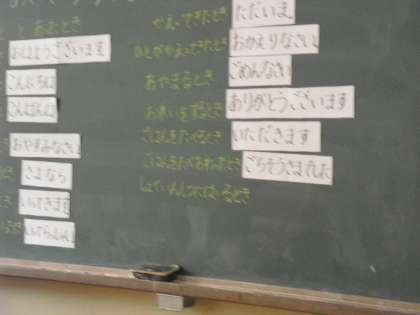 とあったとき
おはようございます
こんにちは
こんばんは
おやすみなさい
さよなら
いってきます
いってらっしゃい
かえってきたとき
ただいま
ひとがかえってきたとき
おかえりなさい
あやまるとき
ごめんなさい
おれいをするとき
ありがとうございます
ごはんをたべるとき
いただきます
ごはんをたべおわったとき
ごちそうさまでした
しょくいんしつにはいるとき